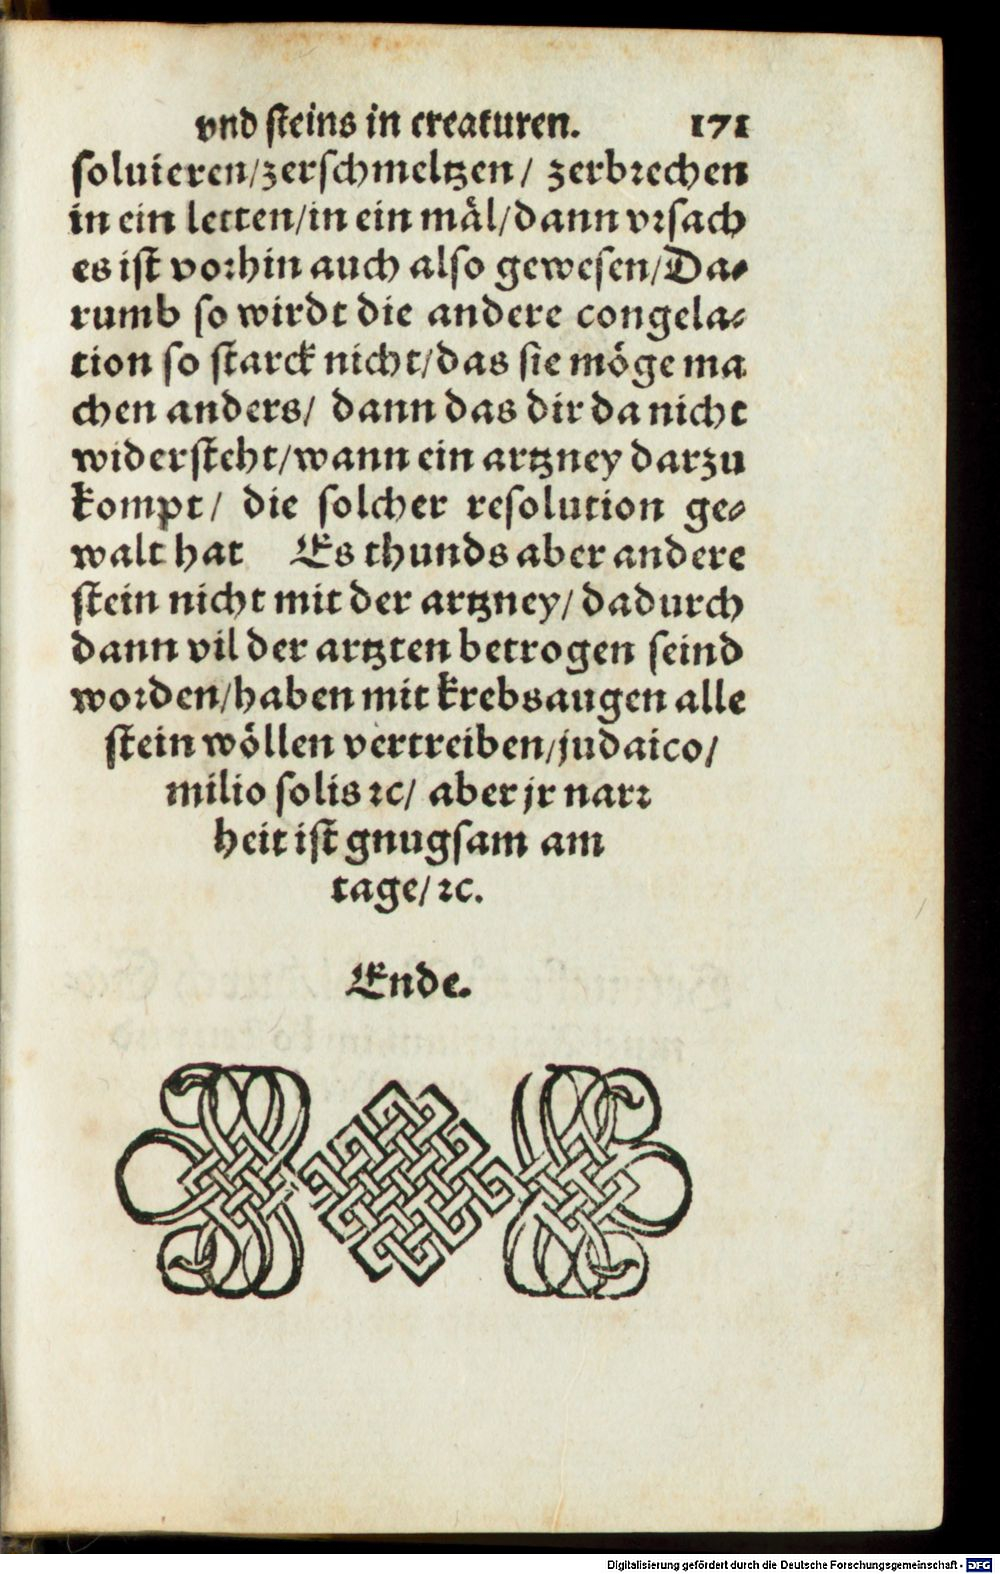 vnd ſteins in creaturen. 171
ſoluieren/zerſchmeltzen/ zerbꝛechen
in ein letten/in ein mål/dann vꝛſach
es iſt voꝛhin auch alſo geweſen/Da⸗
rumb ſo wirdt die andere congela⸗
tion ſo ſtarck nicht/das ſie möge ma
chen anders/ dann das dir da nicht
widerſteht/wann ein artzney darzu
kompt/ die ſolcher reſolution ge⸗
walt hat Es thunds aber andere
ſtein nicht mit der artzney/dadurch
dann vil der artzten betrogen ſeind
woꝛden/haben mit krebsaugen alle
ſtein wöllen vertreiben/judaico/
milio ſolis ꝛc/ aber jr narꝛ
heit iſt gnugſam am
tage/ꝛc.
Ende.
Digitalisierung gefördert durch die Deutsche Forschungsgemeinschaft - DFG